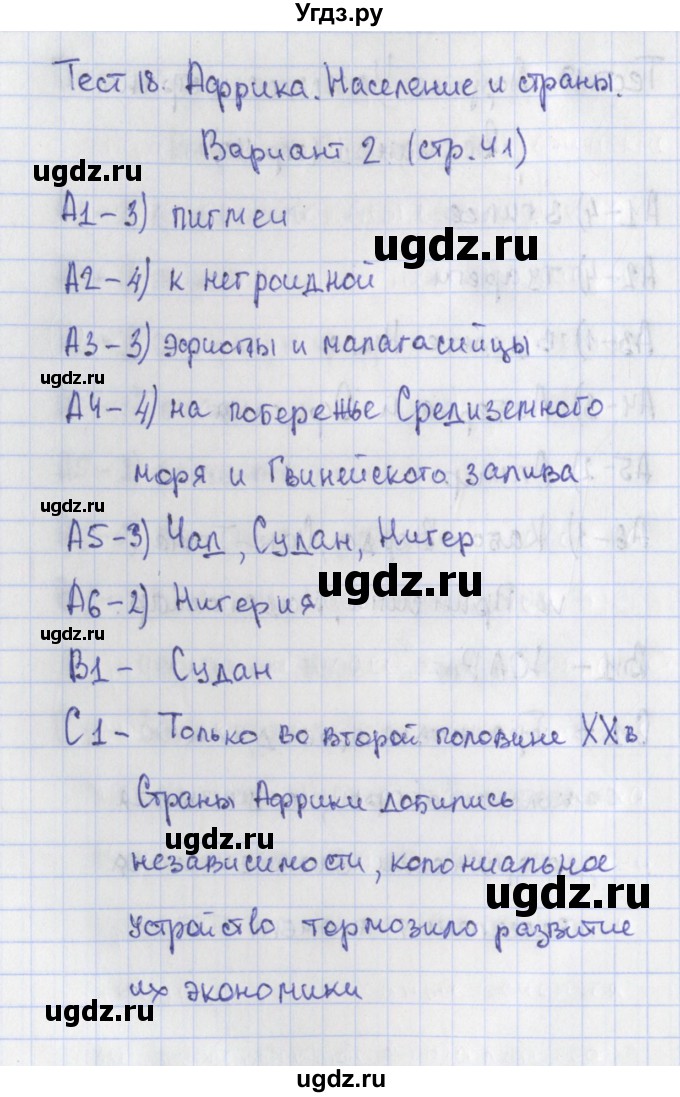 Угдз.ру
Тест 18. Африка. Население и страны.
Вариант 2 (стр.41)
ugdz.ru
А1 – 3) пигмеи
ugdz.ru
А2 – 4) к негроидной
А3 – 3) эфиопы и малагасийцы
ugdz.ru
А4 – 4) на побережье Средиземного
моря и Гвинейского залива
ugdz.ru
А5 – 3) Чад, Судан, Нигер
ugdz.ru
А6 – 2) Нигерия
ugdz.ru
В1 – Судан
С1 – Только во второй половине XX в.
Страны Африки добились
ugdz.ru
независимости, колониальное
ugdz.ru
устройство тормозило развитие
их экономики
ugdz.ru
ugdz.ru